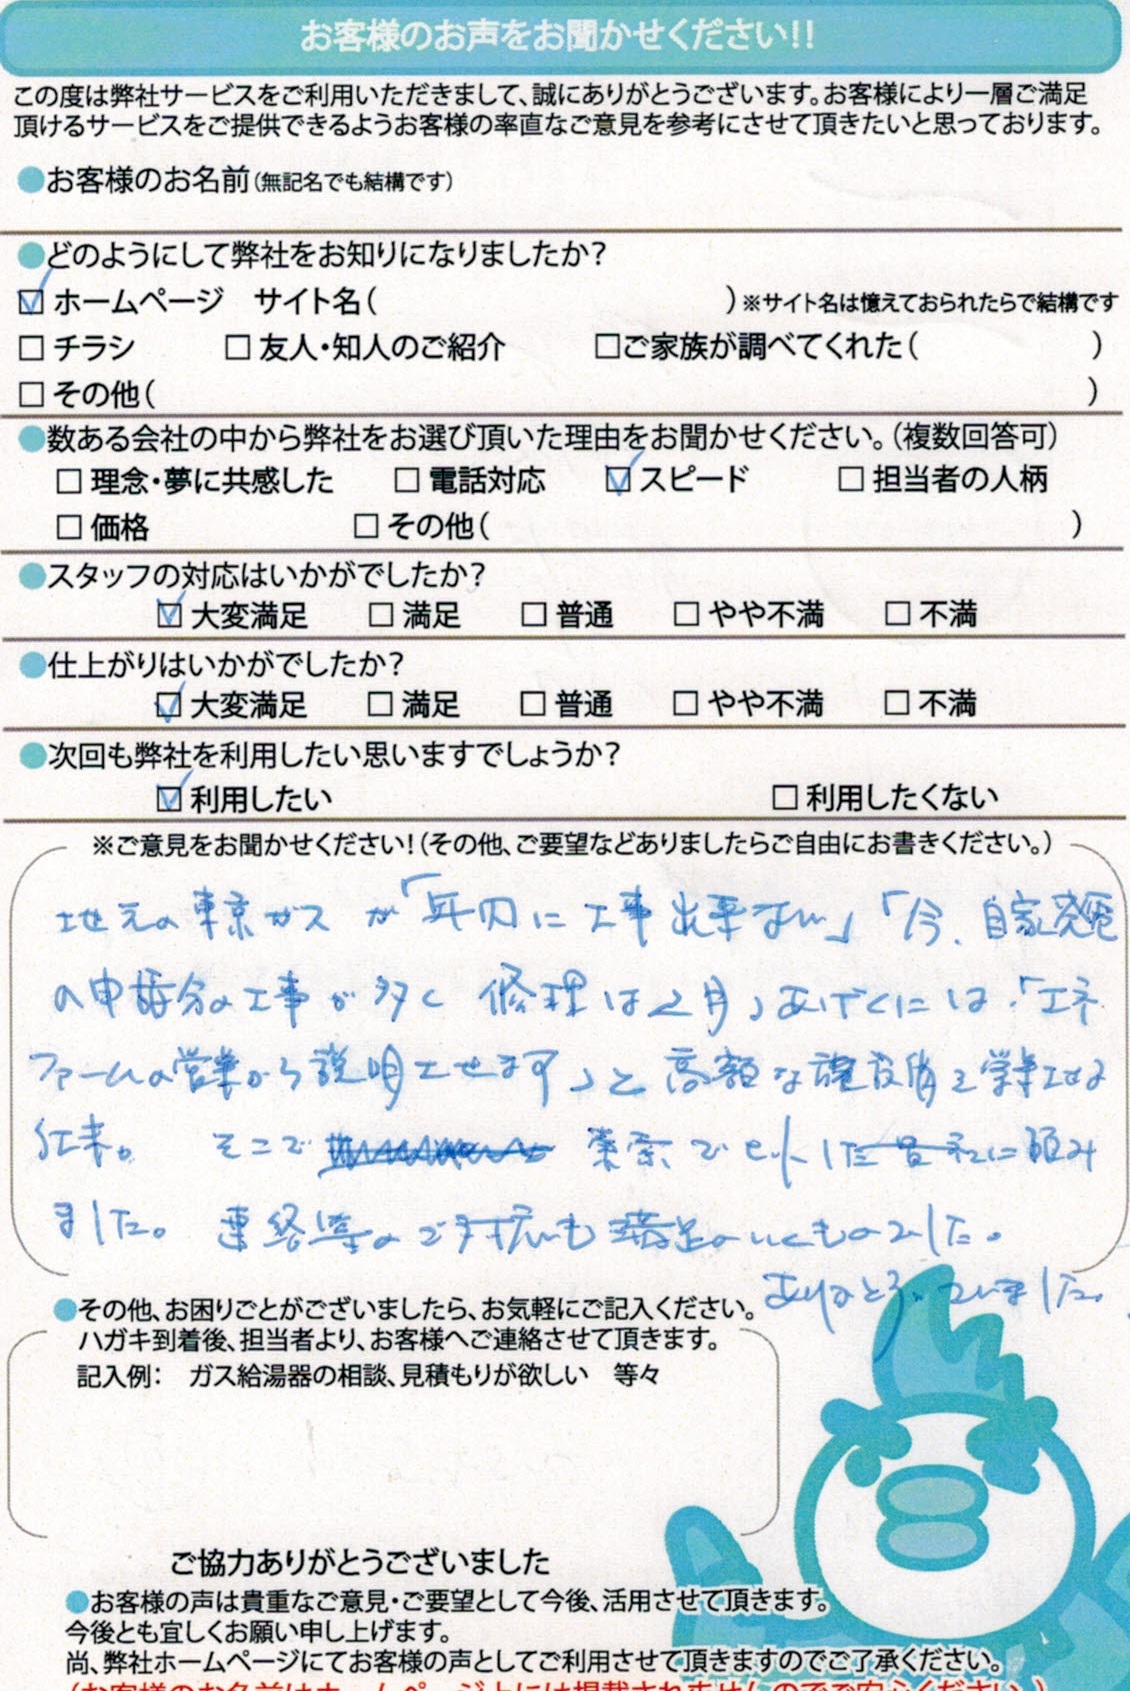 お客様のお声をお聞かせください!!
この度は弊社サービスをご利用いただきまして、誠にありがとうございます。お客様により一層ご満足
頂けるサービスをご提供できるようお客様の率直なご意見を参考にさせて頂きたいと思っております。
●お客様のお名前(無記名でも結構です)
●どのようにして弊社をお知りになりましたか?
☑ホームページ サイト名( )※サイト名は憶えておられたらで結構です
□チラシ □友人・知人のご紹介 □ご家族が調べてくれた( )
□その他( )
●数ある会社の中から弊社をお選び頂いた理由をお聞かせください。(複数回答可)
□理念・夢に共感した □電話対応 ☑スピード □担当者の人柄
□価格 □その他( )
●スタッフの対応はいかがでしたか?
☑大変満足 □満足 □普通 □やや不満 □不満
●仕上がりはいかがでしたか?
☑大変満足 □満足 □普通 □やや不満 □不満
●次回も弊社を利用したい思いますでしょうか?
☑利用したい □利用したくない
※ご意見をお聞かせください!(その他、ご要望などありましたらご自由にお書きください。)
地元の東京ガスが「年内に工事出来ない」「今、自家発電
の申請分の工事が多く 修理は2月」あげくには「エネ
ファームの営業から説明させます」と高額な
仕末。 そこで 検索でヒットした に頼み
ました。 連絡等のご対応も満足のいくものでした。
ありがとうございました。
●その他、お困りごとがございましたら、お気軽にご記入ください。
ハガキ到着後、担当者より、お客様へご連絡させて頂きます。
記入例: ガス給湯器の相談、見積もりが欲しい 等々
ご協力ありがとうございました
●お客様の声は貴重なご意見・ご要望として今後、活用させて頂きます。
今後とも宜しくお願い申し上げます。
尚、弊社ホームページにてお客様の声としてご利用させて頂きますのでご了承ください。
(お客様のお名前はホームページ上には掲載されませんのでご安心ください。)